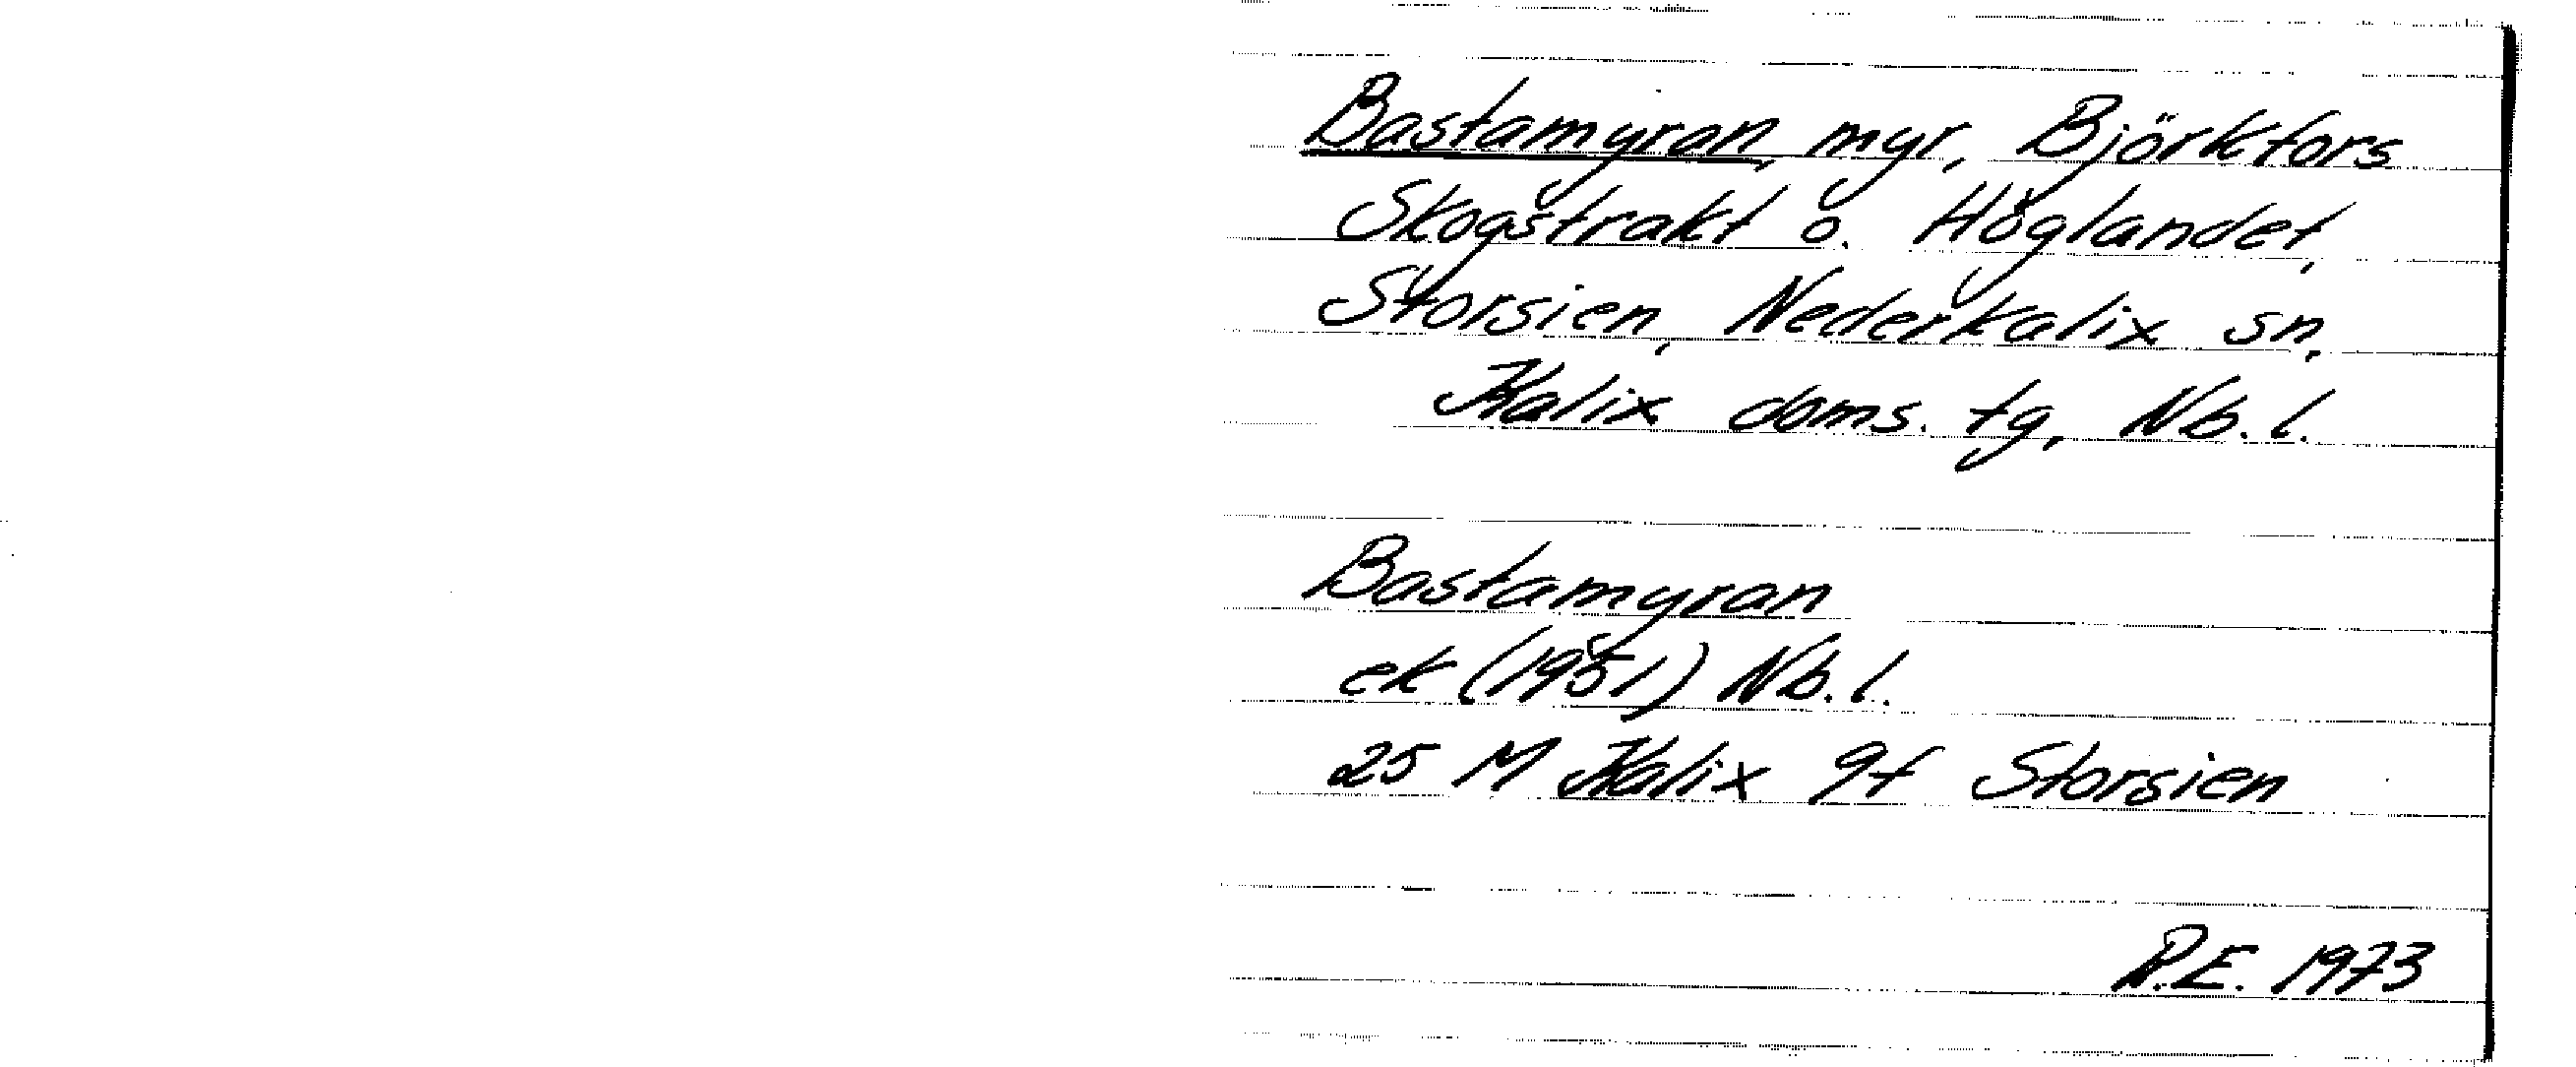 Bastamyran, myr, Björkfors
Skogstrakt o. Höglandet,
Storsien, Nederkalix sn,
Kalix doms. tg, Nb. l.
Bastamyran
ek (1951) Nb. l.
25 M Kalix 9f Storsien
R.E. 1973